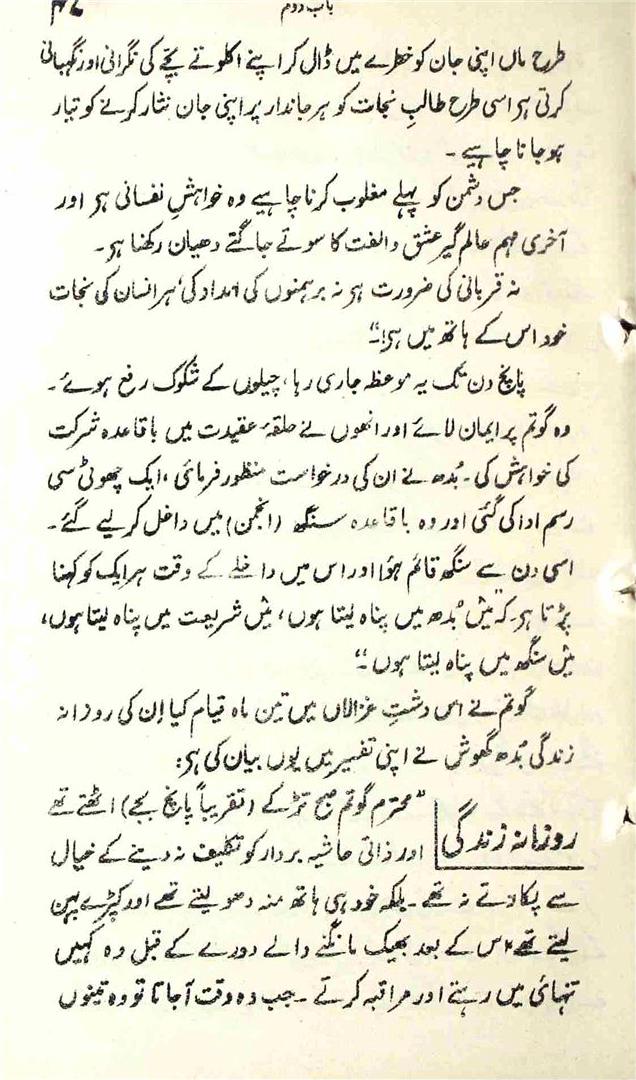 باب دوم ۴۷
طرح ماں اپنی جان کو خطرے میں ڈال کر اپنے اکلوتے بچے کی نگرانی اور نگہبانی
کرتی ہر اسی طرح طالبِ نجات کو ہر جاندار پر اپنی جان نثار کرنے کو تیار
ہو جانا چاہیے ۔
جس دشمن کو پہلے مغلوب کرنا چاہیے وہ خواہشِ نفسانی ہر اور
آخری مہم عالم گیر عشق و الفت کا سوتے جاگتے دھیان رکھنا ہر ۔
نہ قربانی کی ضرورت ہر نہ برہمنوں کی امداد کی‘ ہر انسان کی نجات
خود اس کے ہاتھ میں ہر!“
پانچ دن تک یہ موعظہ جاری رہا، چیلوں کے شکوک رفع ہوئے ۔
وہ گوتم پر ایمان لائے اور انھوں نے حلقۂ عقیدت میں باقاعدہ شرکت
کی خواہش کی ۔ بُدھ نے ان کی درخواست منظور فرمائی ، ایک چھوٹی سی
رسم ادا کی گئی اور وہ باقاعدہ سنگھ (انجمن) میں داخل کرلیے گئے ۔
اسی دن سے سنگھ قائم ہؤا اور اس میں داخلے کے وقت ہر ایک کو کہنا
پڑتا ہر کہ ”میں بُدھ میں پناہ لیتا ہوں، میں شریعت میں پناہ لیتا ہوں،
میں سنگھ میں پناہ لیتا ہوں ۔“
گوتم نے اس دشتِ غزالاں میں تین ماہ قیام کیا اِن کی روزانہ
زندگی بُدھ گھوش نے اپنی تفسیر میں یوں بیان کی ہر:
روزانہ زندگی
”محترم گوتم صبح تڑکے (تقریباً پانچ بجے) اٹھتے تھے
اور ذاتی حاشیہ بردار کو تکلیف نہ دینے کے خیال
سے پکارتے نہ تھے ۔ بلکہ خود ہی ہاتھ منہ دھو لیتے تھے اور کپڑے پہن
لیتے تھے، اس کے بعد بھیک مانگنے والے دورے کے قبل وہ کہیں
تنہائی میں رہتے اور مراقبہ کرتے ۔ جب وہ وقت آجاتا تو وہ تینوں